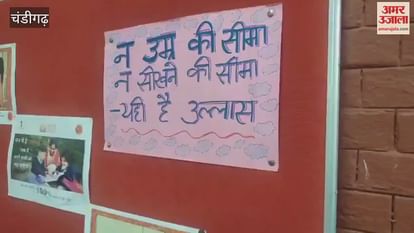 चंडीगढ़
अमर उजाला
amarujala.com
न उम्र की सीमा
न सीखने की सीमा
-यही है उल्लास